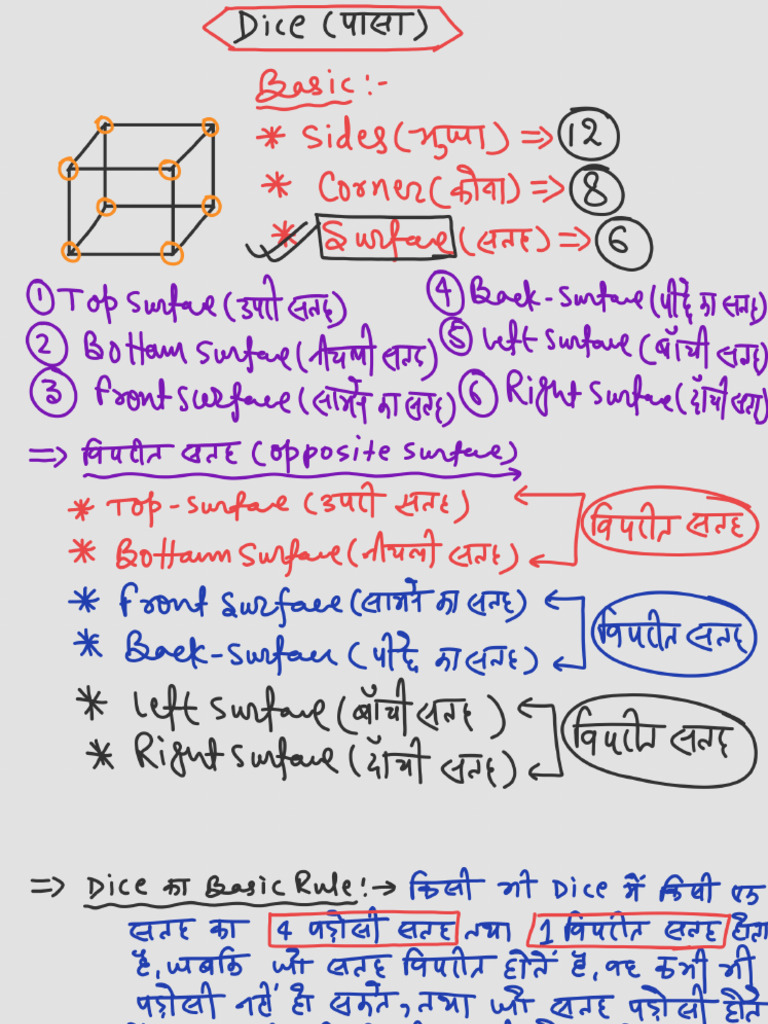 Dice (पासा)
Basic :-
* Sides (भुजा) => 12
* Corner (कोना) => 8
* Surface (सतह) => 6
① Top Surface (उपरी सतह)
② Bottom Surface (नीचली सतह)
③ Front Surface (सामने का सतह)
④ Back-Surface (पीछे का सतह)
⑤ Left Surface (बाँयी सतह)
⑥ Right Surface (दाँयी सतह)
=> विपरीत सतह (opposite surface)
* Top-Surface (उपरी सतह)
* Bottom Surface (नीचली सतह)
विपरीत सतह
* Front Surface (सामने का सतह)
* Back-Surface (पीछे का सतह)
विपरीत सतह
* Left Surface (बाँयी सतह)
* Right Surface (दाँयी सतह)
विपरीत सतह
=> Dice का Basic Rule :→ किसी भी Dice में किसी एक
सतह का 4 पड़ोसी सतह तथा 1 विपरीत सतह होता
है, जबकि जो सतह विपरीत होतें है, वह कभी भी
पड़ोसी नहीं हो सकतें, तथा जो सतह पड़ोसी होतें